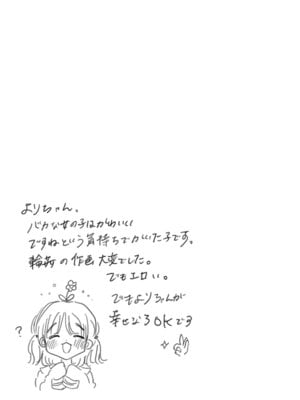 よりちゃん。
バカな女の子はかわいい
ですねという気持ちでかいた子です。
輪姦の作画大変でした。
でもエロい。
でもよりちゃんが
幸せならOKです
?